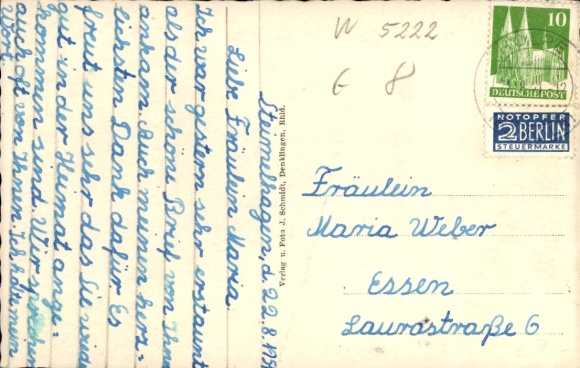 Steimelhagen, d. 22.8.195
Liebe Fräulein Maria.
Ich war gestern sehr erstaunt
als der schöne Brief von Ihnen
ankam. Auch meinen herz-
lichsten Dank dafür. Es
freut uns sehr das Sie wieder
gut in der Heimat ange-
kommen sind. Wir sprechen
auch oft von Ihnen. Ich halt mein
Wort.
Verlag u. Foto J. Schmidt, Denklingen, Rhld.
W 5222
G 8
10
DEUTSCHE POST
NOTOPFER
2 BERLIN
STEUERMARKE
Fräulein
Maria Weber
Essen
Laurastraße 6